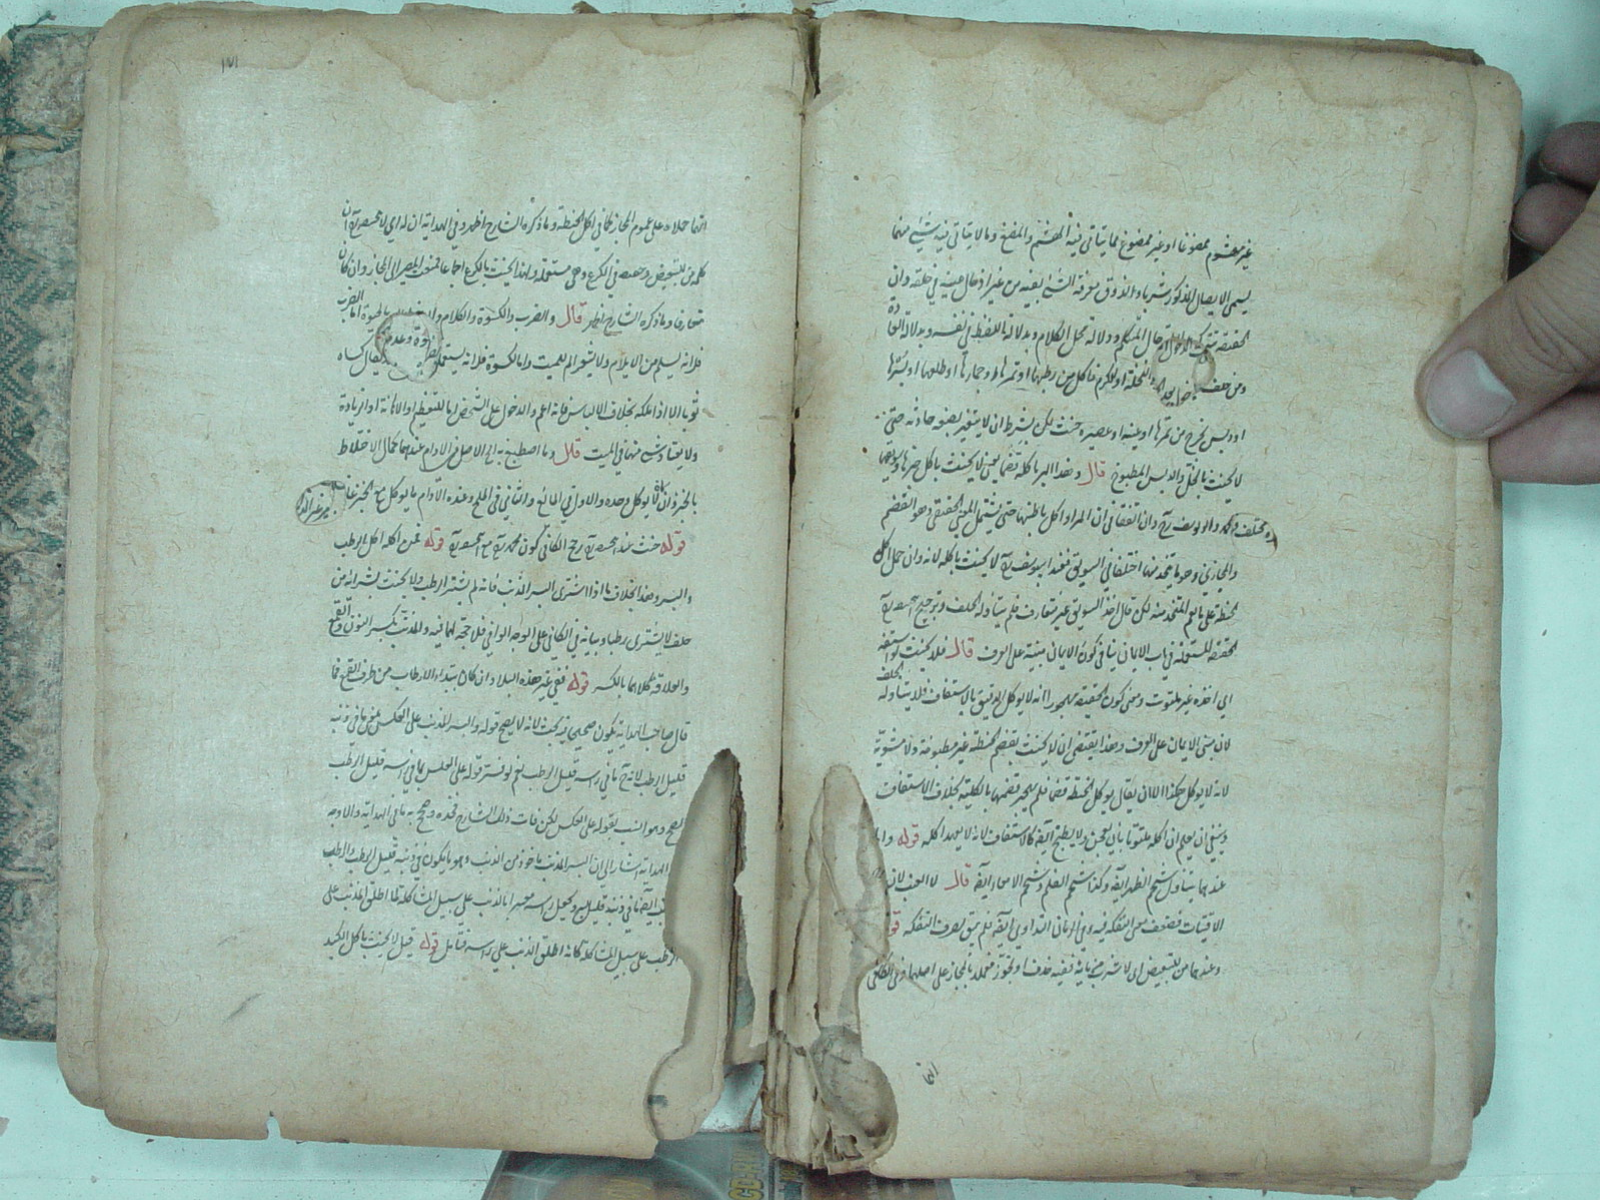 غير مهشوم ممضوغا او غير ممضوغ مما يتأتى فيه الهشم والمضغ وما لا يتأتى فيه شيء منهما
يسمى الايصال المذكور شربا والذوق معرفة الشيء بفيه من غير ادخال عينه في حلقه وان
الحقيقة تترك بدلالة حال المتكلم ودلالة محل الكلام وبدلالة اللفظ في نفسه وبدلالة العادة
ومن حلف النخلة او الكرم فاكل من رطبها او تمرها او جمارها او طلعها او بسرها
او دبس يخرج من تمرها او عينه او عصيره حنث لكن بشرط ان لا يتغير بصنعة حادثة حتى
لا يحنث بالخل والدبس المطبوخ قال وهذا البر باكله قضما يعني لا يحنث باكل خبزها
محمد وابو يوسف رح وان اتفقا في ان المراد اكل باطنها حتى يشتمل المعنى الحقيقي وهو القضم
والمجازي وهو ما يتخذ منها اختلفا في السويق فعند ابي يوسف رح لا يحنث باكله لانه وان حمل اكل
الحنطة على ما هو المتخذ منه لكن قال اخذ السويق غير متعارف فلم يتناوله الحلف وترجيح ابي حنيفة رح
الحقيقة المستعملة في باب الايمان ينافي كون الايمان مبنية على العرف قال فلا يحنث لو استفه
اي اخذه غير ملتوت ومعنى كون الحقيقة مهجورة انه لا يؤكل الدقيق بالاستفاف فلا يتناوله الحلف
لان مبنى الايمان على العرف وهذا يقتضي ان لا يحنث بقضم الحنطة غير مطبوخة ولا مشوية
لانه لا يؤكل هكذا الا ان يقال يؤكل الحنطة قضما فلم يهجر قضمها بالكلية بخلاف الاستفاف
وينبغي ان يعلم ان اكله ملتوتا بان يعجن ولا يطبخ ايضا كالاستفاف لانه لا يعهد اكله قوله
عندهما يتناول شحم الظهر ايضا وكذا شحم الضلع وشحم الامعاء ايضا قال لا العنب
الاقتيات فضعف معنى التفكه فيه وفي الرمان التداوي ايضا فلم يبق لصرف التفكه
وعندهما من للتبعيض اي لا شرب من مائه ففيه حذف او تجوز فعملا بالمجاز على اصلهما وفي الكافي
انهما
١٨١
انهما حملاه على عموم المجاز كما في اكل الحنطة وما ذكره الشارح اظهر وفي الهداية ان له اي لابي حنيفة رح ان
كلمة من للتبعيض وحقيقته في الكرع وهي مستعملة ولهذا يحنث بالكرع اجماعا فمنعت المصير الى المجاز وان كان
متعارفا وما ذكره الشارح اظهر قال والضرب والكسوة والكلام والدخول بالحيوة اما الضرب
فلانه اسم من الايلام ولا يتصور الم للميت واما الكسوة فلانه يستعمل يقال كساه
ثوبا الا اذا ملكه بخلاف الالباس فانه اعم والدخول على الشخص اما للتعظيم او الاهانة او الزيادة
ولا يعتاد شيء منها في الميت قال وما اصطبغ به الى الاصل في الادام عندهما كمال الاختلاط
بالخبز وان لا يؤكل وحده والاول في المائع والثاني في الملح وعنده الادام ما يؤكل مع الخبز غالبا
قوله حنث عند ابي حنيفة رح رجح الكافي كون محمد رح مع ابي حنيفة رح قوله فمن اكله اكل الرطب
والبسر وهذا بخلاف ما اذا اشترى البسر المذنب فانه لم يشتر الرطب ولا يحنث بشرائه من
حلف لا يشتري رطبا وبيانه في الكافي على الوجه الوافي فلا حجة لهما فيه والمذنب بكسر النون والقمع
والعلاقة كلاهما بالكسر قوله ففي غير هذه البلاد ان كان ابتداء الارطاب من طرف القمع فما
قال صاحب الهداية يكون صحيحا فيه بحث لانه لا يصح قوله والبسر المذنب على العكس يعني ما في ذنبه
قليل الرطب لانه ح ما في راسه قليل الرطب نعم لو فسر قوله على العكس بما في راسه قليل الرطب
لصح وهو انسب بقوله على العكس لكن فات ذلك الشارح فخذه وصحح به ما في الهداية والاوجه
الهداية اشار الى ان البسر المذنب ماخوذ من الذنب وهو ما يكون في ذنبه قليل الرطب والرطب
ايضا ما في ذنبه قليل بسر وجعل راسه مبسرا بالذنب على سبيل المشاكلة لما اطلق المذنب على
الرطب على سبيل المشاكلة كانه اطلق الذنب على راسه فتامل قوله قيل لا يحنث باكل الكبد